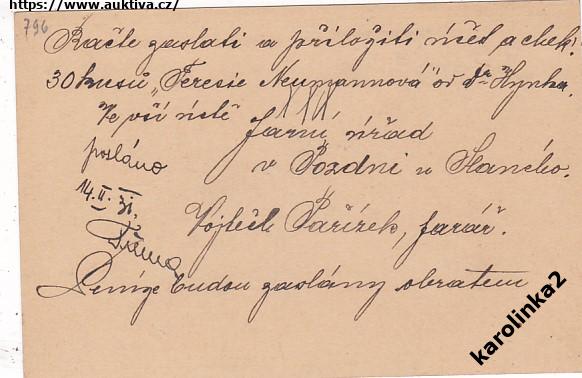 https://www.auktiva.cz/
796
Račte zaslati a přiložiti účet a chek!
30 kusů „Teresie Neumannová“ od Dr Hynka.
Ve vší úctě
farní úřad
posláno
v Pozdni u Slaného.
14.II.31.
Vojtěch Pařízek, farář.
Peníze budou zaslány obratem
karolinka2